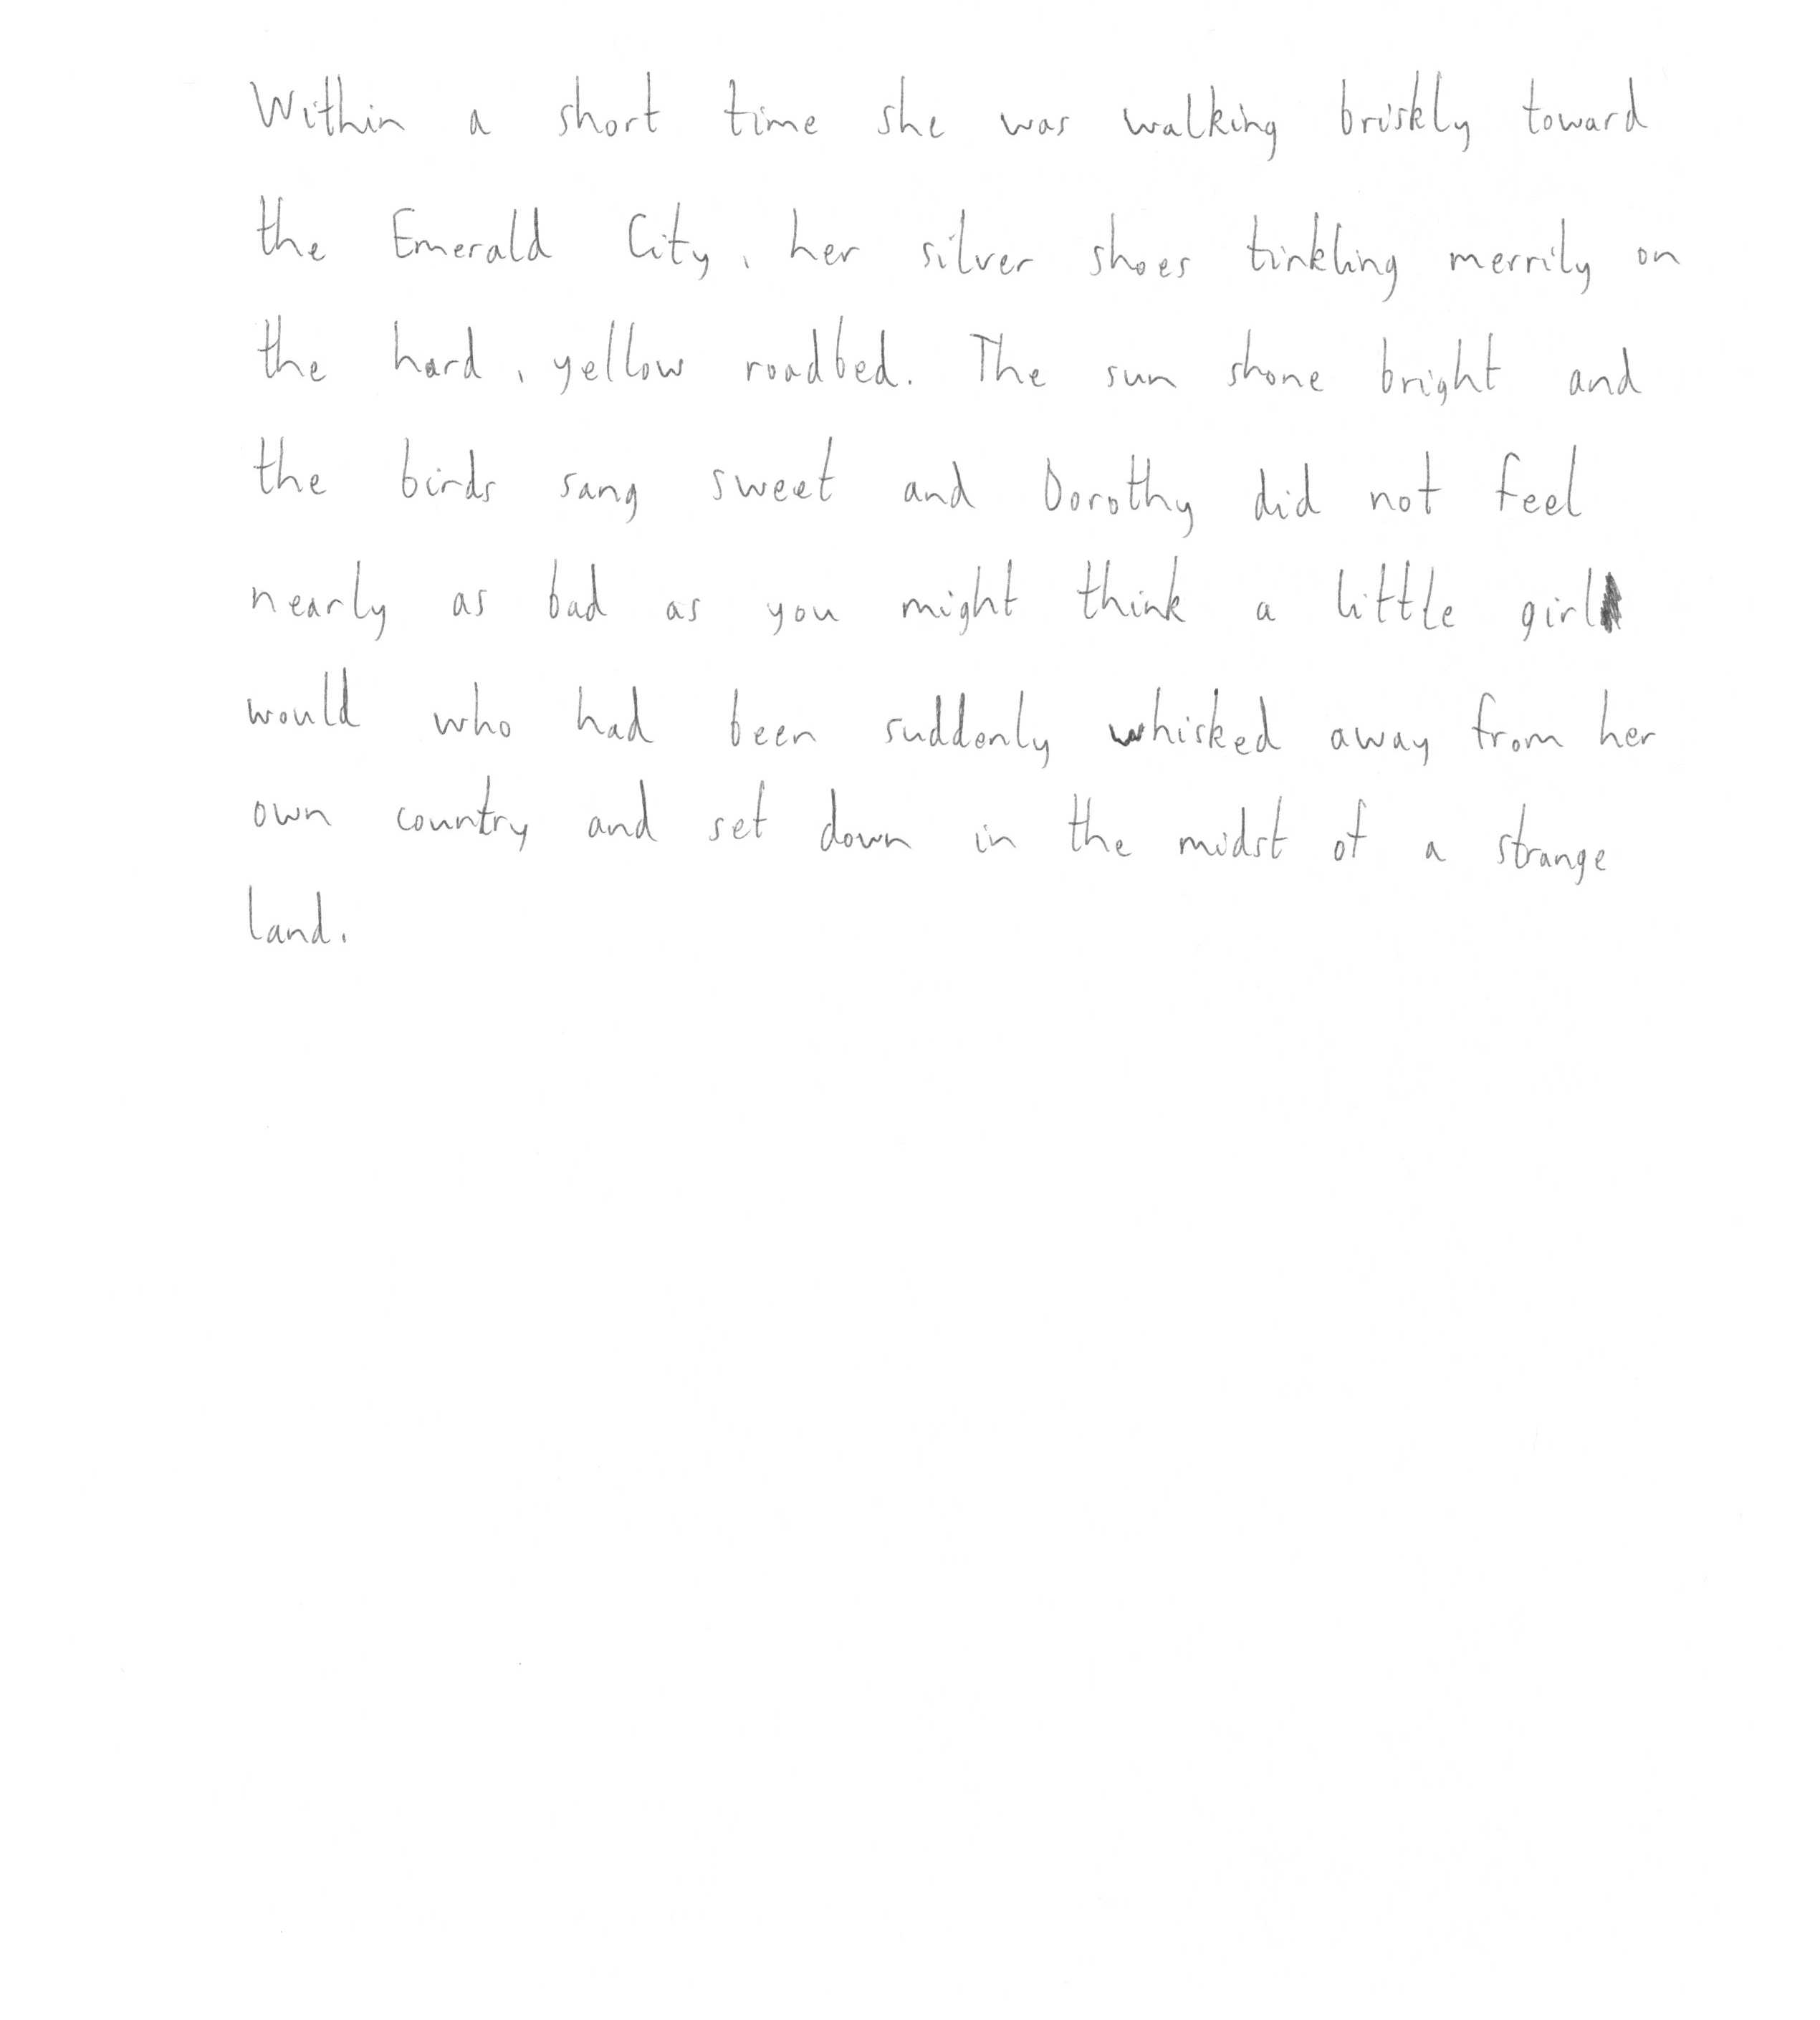 Within a short time she was walking briskly toward
the Emerald City, her silver shoes tinkling merrily on
the hard, yellow roadbed. The sun shone bright and
the birds sang sweet and Dorothy did not feel
nearly as bad as you might think a little girl
would who had been suddenly whisked away from her
own country and set down in the midst of a strange
land.